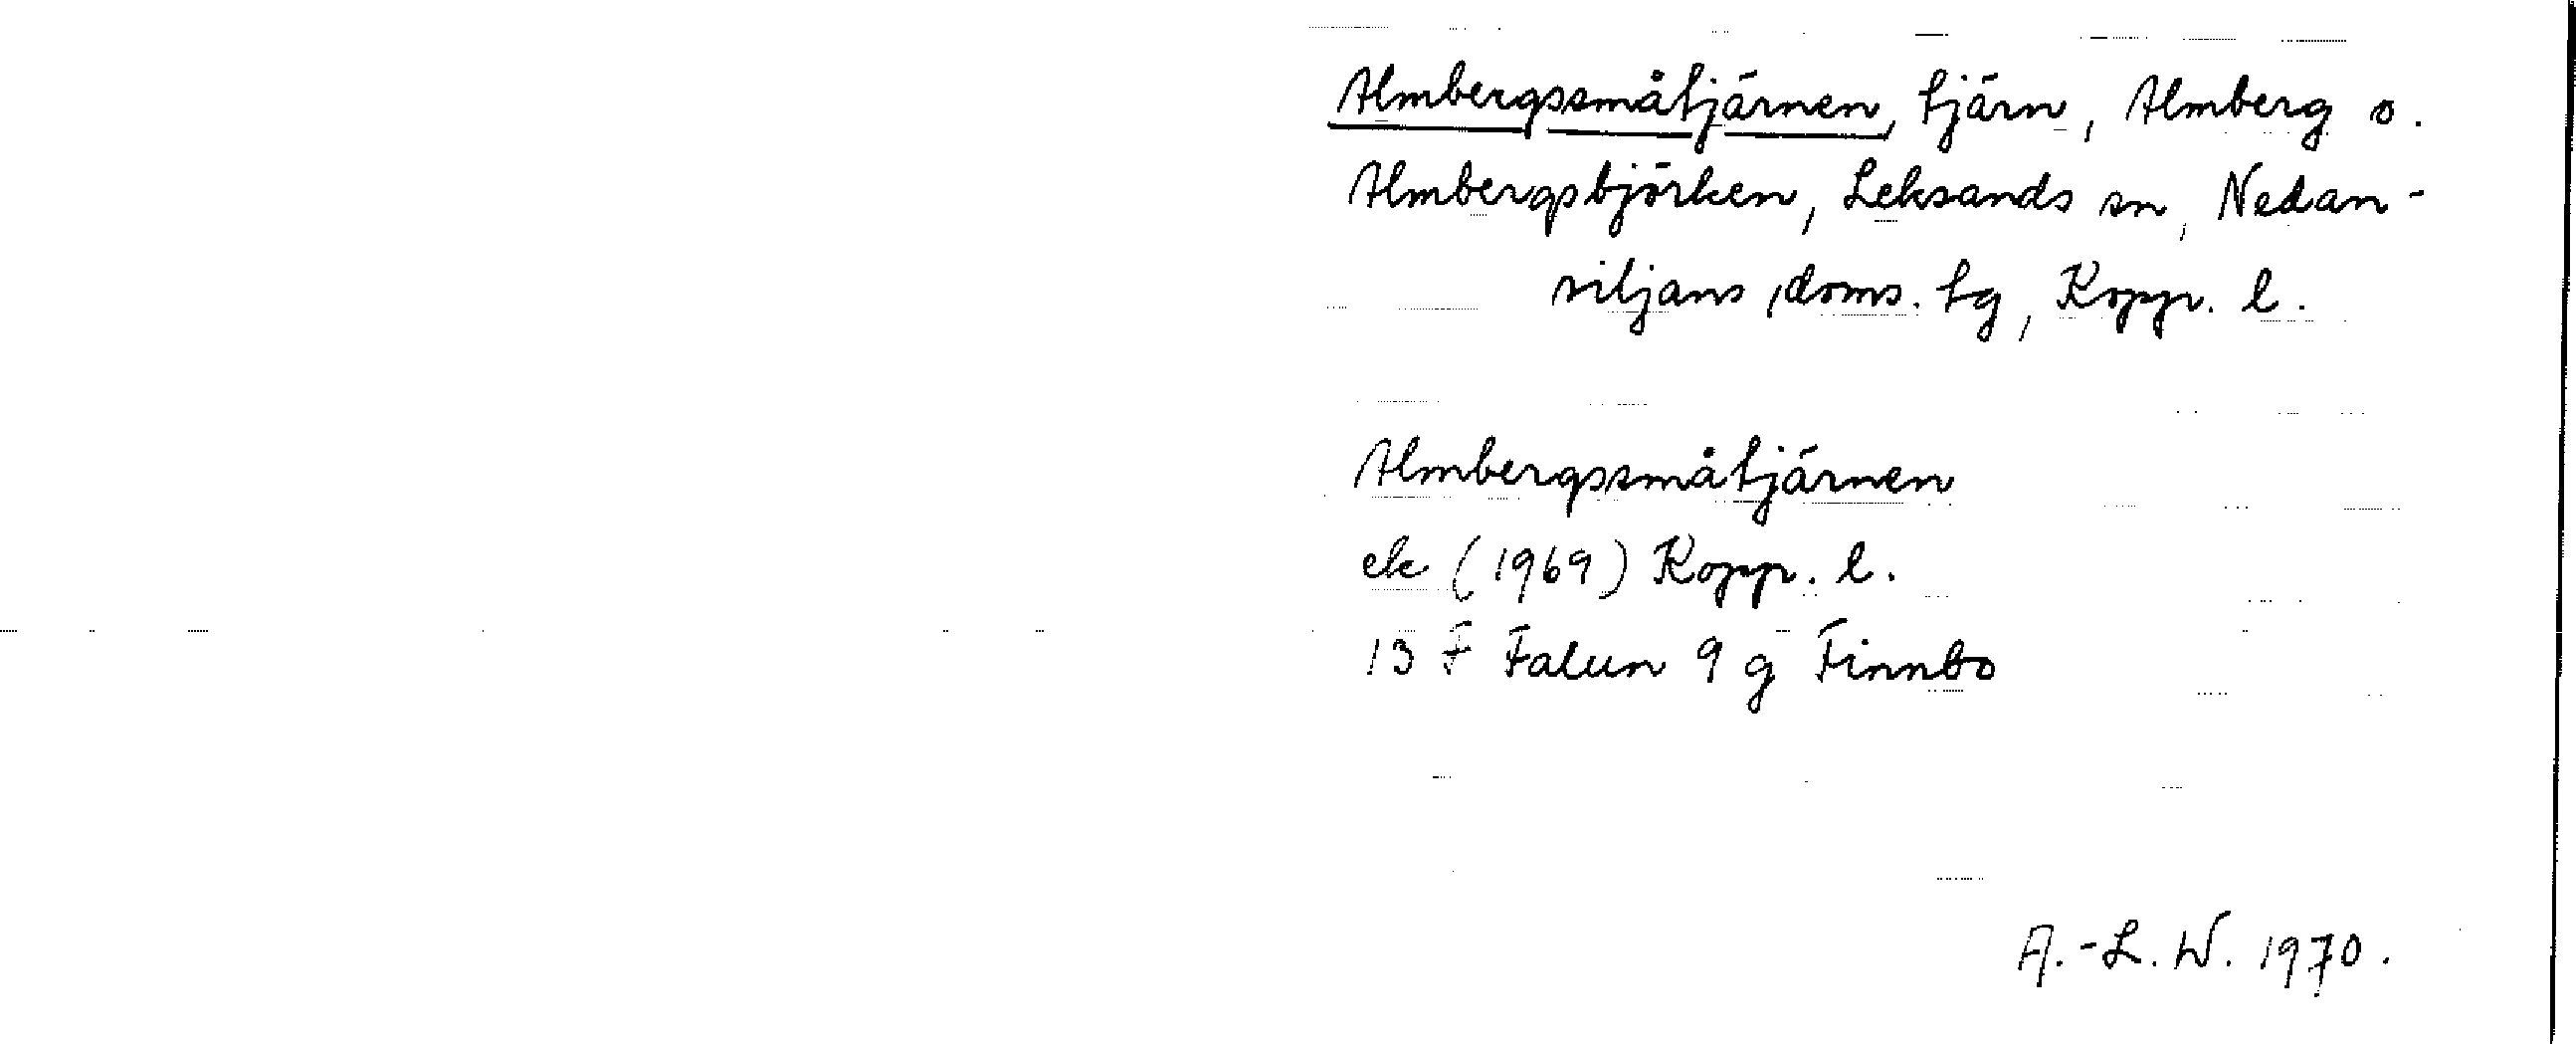 Almbergssmåtjärnen, tjärn, Almberg o.
Almbergsbjörken, Leksands sn, Nedan-
siljans doms. tg, Kopp. l.
Almbergssmåtjärnen
ek (1969) Kopp. l.
13 F Falun 9 g Finnbo
A.-L. W. 1970.